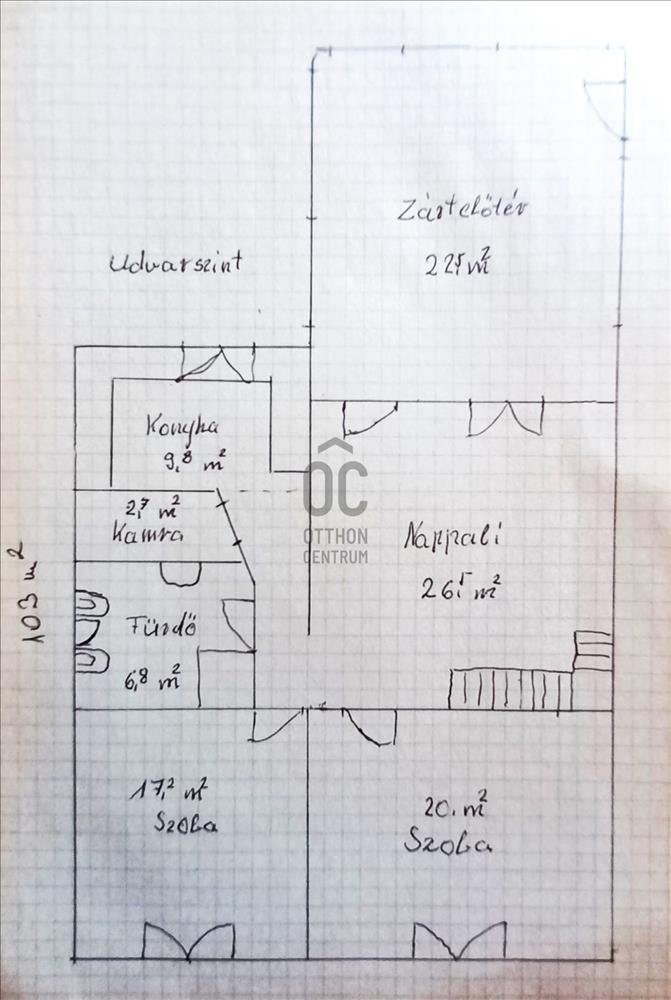 Zártelőtér
22,5 m²
Udvarszint
Konyha
9,8 m²
2,7 m²
Kamra
ÔC
OTTHON
CENTRUM
Nappali
26,5 m²
103 m²
Fürdő
6,8 m²
17,2 m²
Szoba
20. m²
Szoba